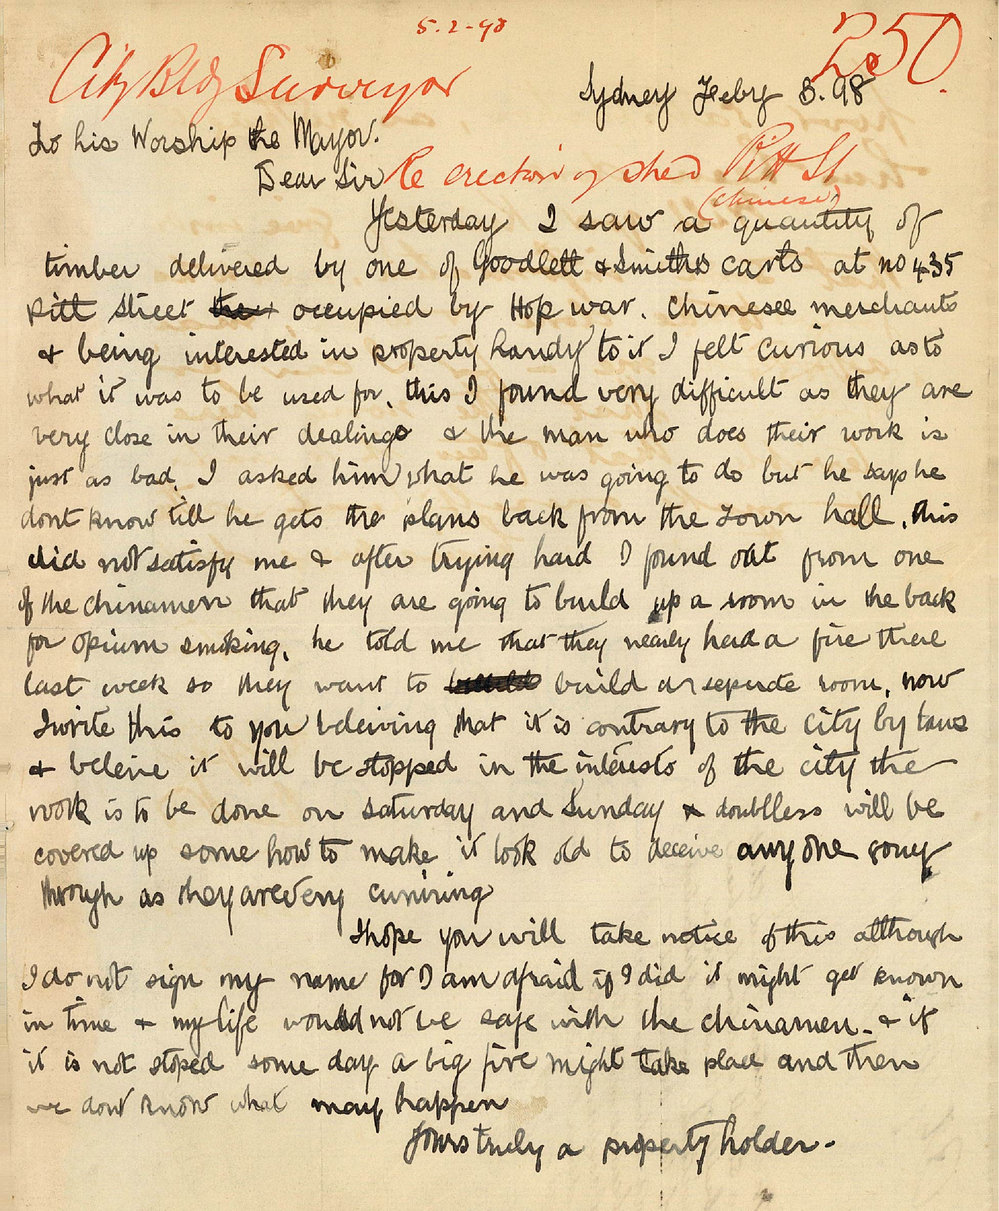 5.2-98
250
City Bldg Surveyor
Sydney Feby 3.98
To his Worship the Mayor.
Dear Sir Re erection of shed Pitt St
(Chinese)
Yesterday I saw a quantity of
timber delivered by one of Goodlett & Smiths carts at no 435
Pitt Street the occupied by Hop war. Chinesee merchants
& being interested in property handy to it I felt curious as to
what it was to be used for, this I found very difficult as they are
very close in their dealings & the man who does their work is
just as bad, I asked him what he was going to do but he says he
dont know till he gets the plans back from the Town hall, this
did not satisfy me & after trying hard I found out from one
of the chinamen that they are going to build up a room in the back
for opium smoking, he told me that they nearly had a fire there
last week so they want to build a seperate room, now
I write this to you beleiving that it is contrary to the city by laws
& beleive it will be stopped in the interests of the city the
work is to be done on Saturday and Sunday & doubtless will be
covered up some how to make it look old to deceive any one going
through as they are very cunning
I hope you will take notice of this although
I do not sign my name for I am afraid if I did it might get known
in time & my life would not be safe with the chinamen - & if
it is not stoped some day a big fire might take place and then
we dont know what may happen
Yours truly a property holder -